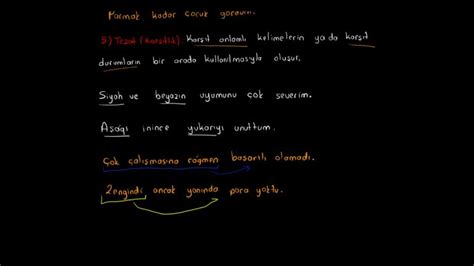 Parmak kadar çocuk gördüm.
5) Tezat (Karşıtlık) Karşıt anlamlı kelimelerin ya da karşıt
durumların bir arada kullanılmasıyla oluşur.
Siyah ve beyazın uyumunu çok severim.
Aşağı inince yukarıyı unuttum.
Çok çalışmasına rağmen başarılı olamadı.
Zengindi ancak yanında para yoktu.